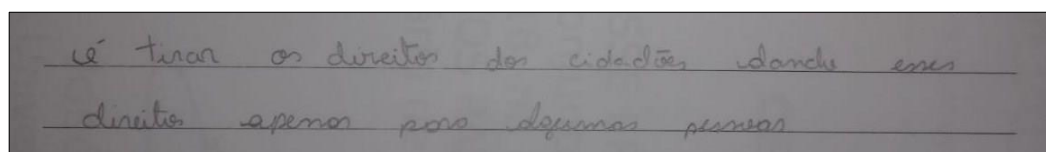 é tirar os direitos dos cidadões dando esses
direitos apenas para algumas pessoas